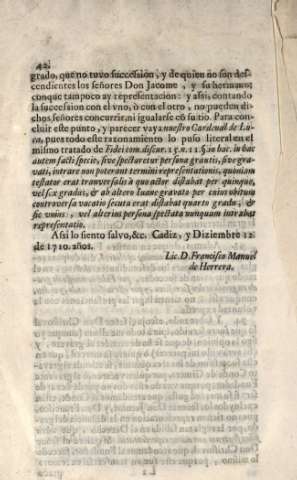 42.
grado, que no tuvo succession, y de quien no son des-
cendientes los señores Don Jacome, y su hermano:
conque tampoco ay representacion: y assi, contando
la succession con el vno, ò con el otro, no pueden di-
chos señores concurrir, ni igualarse cõ su tio. Para con-
cluir este punto, y parecer vaya nuestro Cardenal de Lu-
ca, pues todo este razonamiento lo puso literal en el
mismo tratado de Fidei com. discur. 15. n. 11. §. in hac. in hac
autem facti specie, sive spectaretur persona grautis, sive gra-
vati, intrare non poterant termini representationis, quoniam
testator erat transversalis à quo actor distabat per quinque,
vel sex gradus, & ab altero Iuane gravata per cuius obitum
controversa vacatio secuta erat distabat quarto gradu, &
sic unius, vel alterius persona spectata nunquam intrabat
representatio.
Assi lo siento salvo, &c. Cadiz, y Diziembre 22
de 1710. años.
Lic. D. Francisco Manuel
de Herrera.